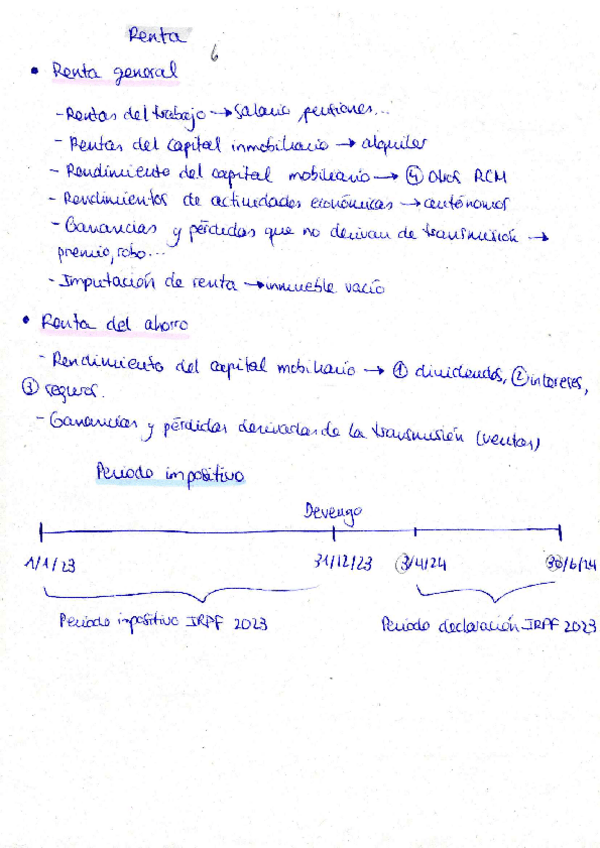 Renta
6
• Renta general
- Rentas del trabajo → salario, pensiones...
- Rentas del capital inmobiliario → alquiler
- Rendimiento del capital mobiliario → ④ otros RCM
- Rendimientos de actividades económicas → autónomos
- Ganancias y pérdidas que no derivan de transmisión →
premio, robo...
- Imputación de renta → inmueble vacío
• Renta del ahorro
- Rendimiento del capital mobiliario → ① dividendos, ② intereses,
③ seguros.
- Ganancias y pérdidas derivadas de la transmisión (ventas)
Periodo impositivo
Devengo
1/1/23 31/12/23 3/4/24 30/6/24
Periodo impositivo IRPF 2023 Periodo declaración IRPF 2023